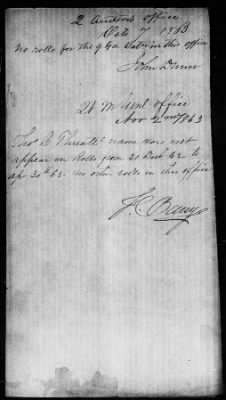 2 Auditors office
Oct 7 1863
no rolls for the 9 Ga Baty in this office
John Dunn
2t M Genl office
Nov 2nd 1863
Thos L Threatts name does not
appear on Rolls from 31 Dec 62 to
ap 30th 63. no other rolls in this office
F. C. Barry